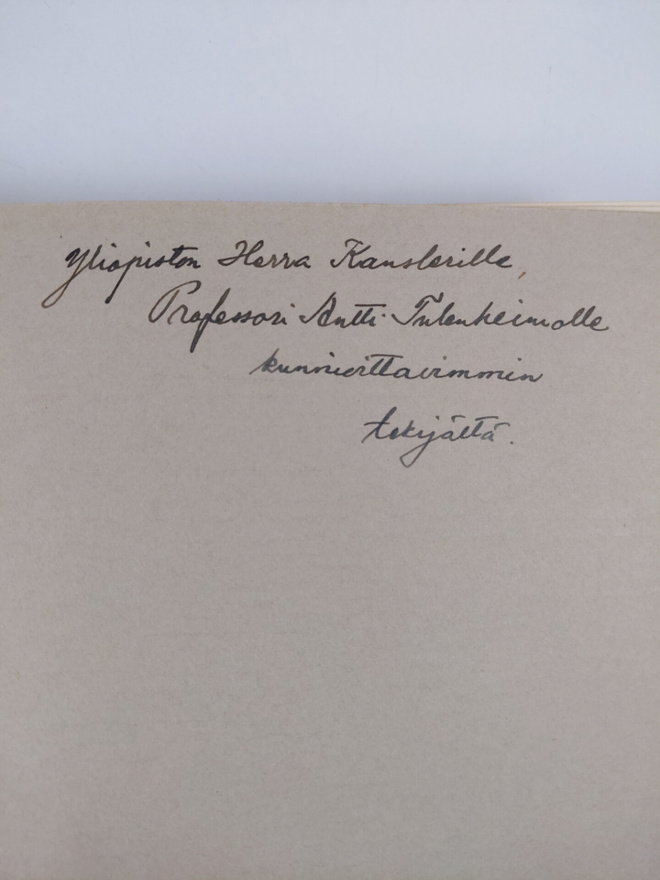 Yliopiston Herra Kanslerille,
Professori Antti Tulenheimolle
kunnioittavimmin
tekijältä.